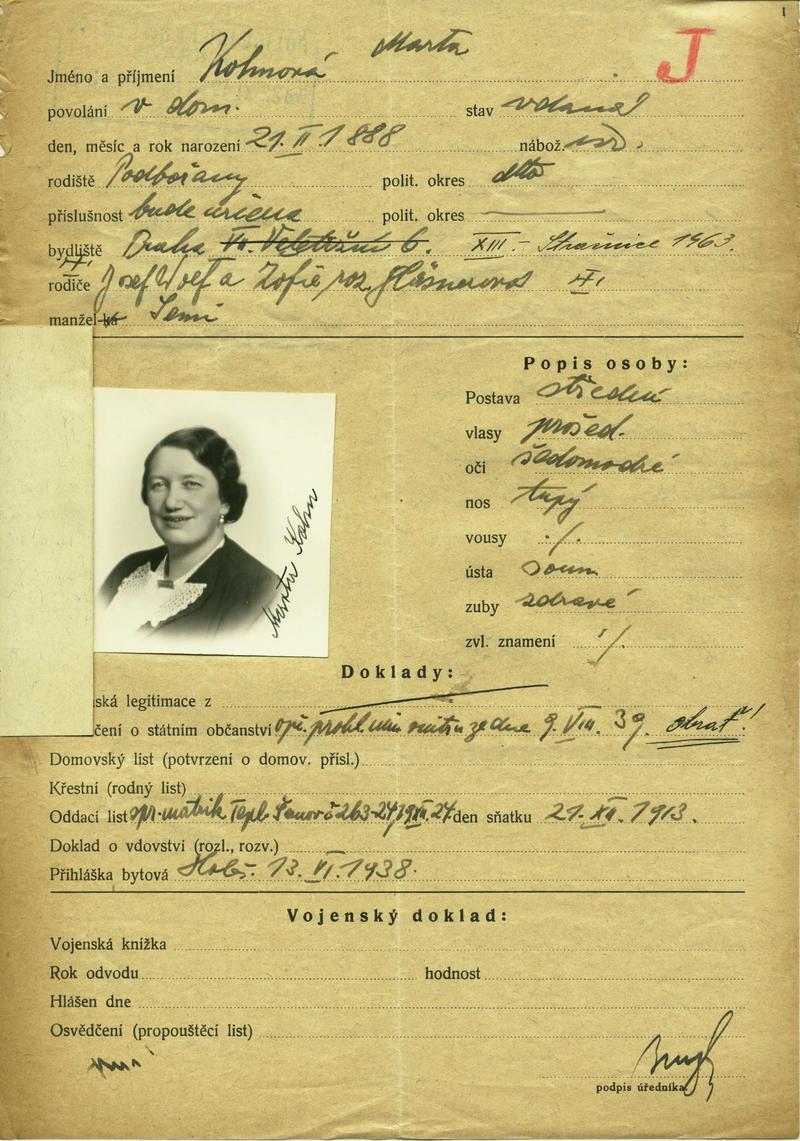 1
J
Jméno a příjmení Kohnová Marta
povolání v dom. stav vdaná
den, měsíc a rok narození 21. II. 1888 nábož. isr.
rodiště Podbořany polit. okres dtto
příslušnost bude určena polit. okres —
bydliště Praha VII. Veletržní 6. XIII. - Strašnice 1963.
rodiče Josef Wolf a Zofie roz.
manžel-ka
Popis osoby:
Postava střední
vlasy prošed.
oči šedomodré
nos tupý
vousy ·/.
ústa soum
zuby zdravé
zvl. znamení ·/.
Marta Kohn
Doklady:
ská legitimace z
čení o státním občanství zde dne 9. VIII. 39. obrať!
Domovský list (potvrzení o domov. přísl.)
Křestní (rodný list)
Oddací list matrik Tepl. Šanov č 263-24 den sňatku 21. XII. 1913.
Doklad o vdovství (rozl., rozv.)
Přihláška bytová Holeš. 13. VI. 1938.
Vojenský doklad:
Vojenská knížka
Rok odvodu hodnost
Hlášen dne
Osvědčení (propouštěcí list)
podpis úředníka.